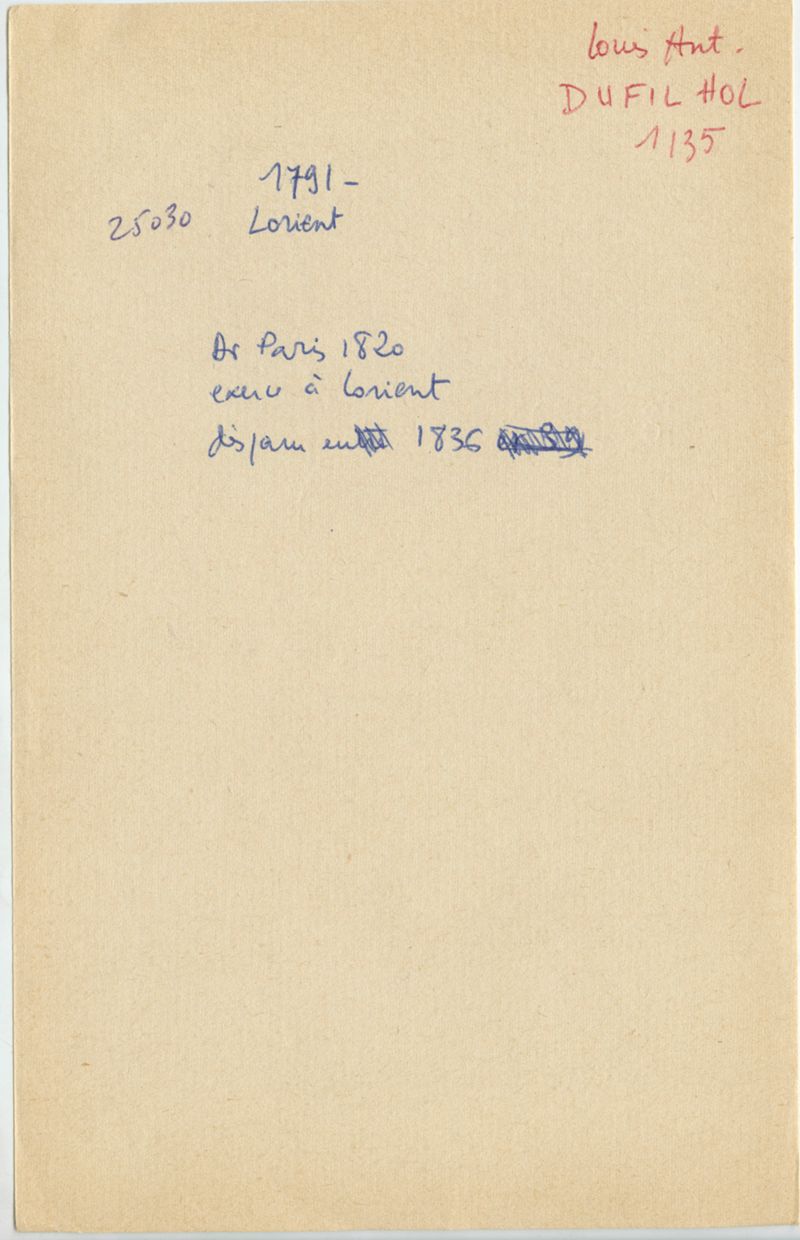 Louis Ant.
DUFILHOL
1135
1791 -
25030 Lorient
Dr Paris 1820
exerce à Lorient
disparu en 1836